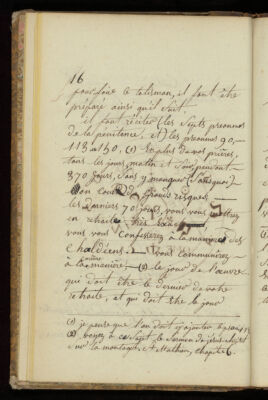 16
pour faire le talisman, il faut être
préparé ainsi qu'il suit
il faut réciter (les sept pseaumes
de la pénitence, et) les pseaumes 90, —
113 et 150. (1) en plus de vos prières,
tous les jours matin et soir pendant
370 jours, sans y manquer
on court de grands risques
les derniers 70 jours, vous vous mettrez
en retraite
vous vous confesserez à la manière des
Chaldéens. vous communierez
à la même manière — (2) le jour de l'œuvre
qui doit être le dernier de votre
retraite, et qui doit être le jour
(1) je pense que l'on doit y ajouter le psaume
(2) voyez à ce sujet le sermon de jésus christ
sur la montagne. St Mathieu, chapitre 6.